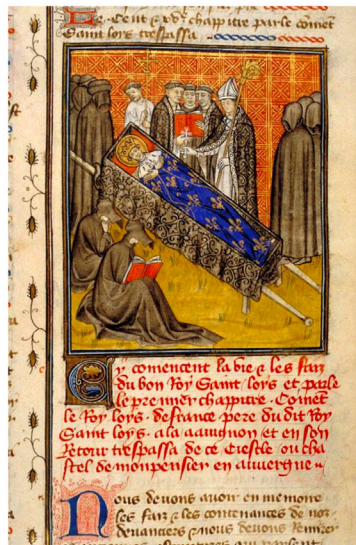 Le . Cent & xvᵉ chappitre parle comẽt
Saint loys trespassa
Cy comencent la vie & les fais
du bon Roy Saint loys et parle
le premier chappitre . Comẽt
le Roy loys . de france pere du dit Roy
Saint loys . ala auignon et en son
Retour trespassa de ce siecle ou chas
tel de monpensier en auuergne
Nous deuons auoir en memoire
les fais & les contenances de noz
deuanciers & nous deuons